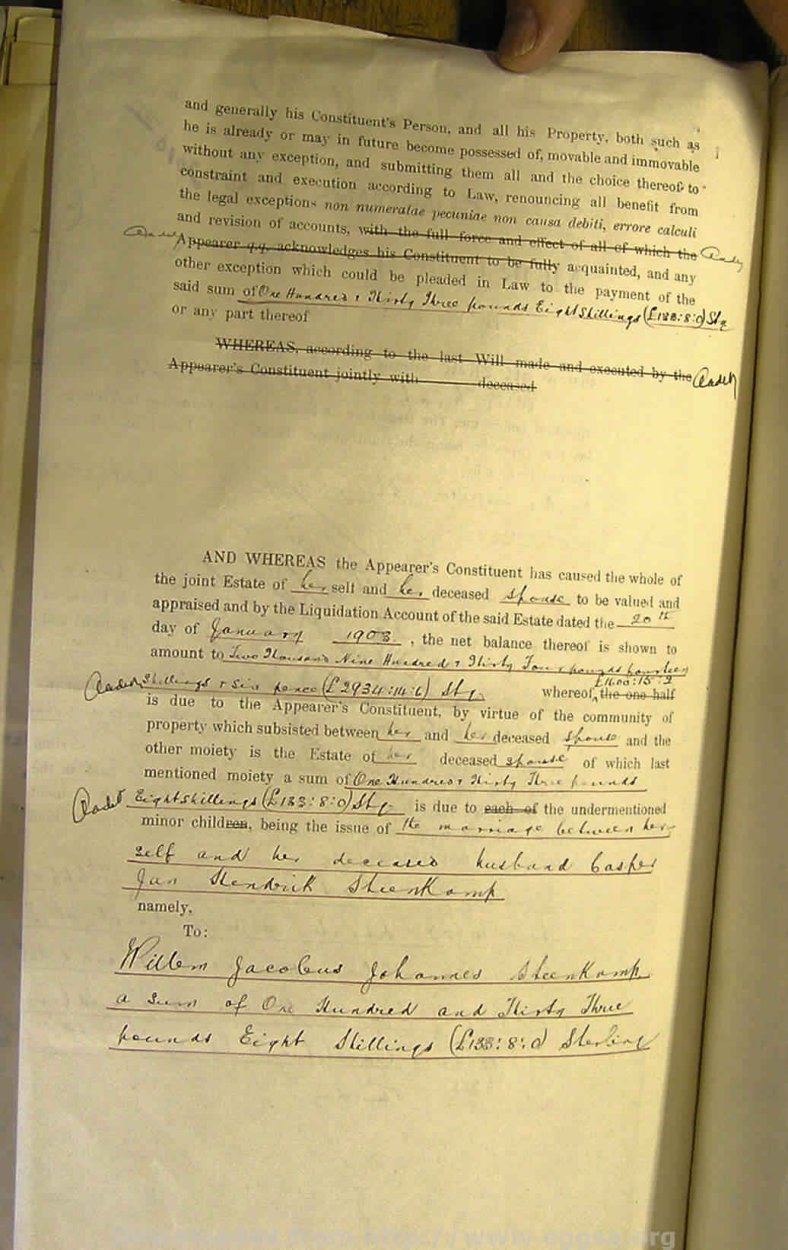 and generally his Constituent's Person, and all his Property, both such as
he is already or may in future become possessed of, movable and immovable
without any exception, and submitting them all and the choice thereof to
constraint and execution according to Law, renouncing all benefit from
the legal exceptions non numeratae pecuniae non causa debiti, errore calculi
and revision of accounts, with the full force and effect of all of which the
Appearer q.q. acknowledges his Constituent to be fully acquainted, and any
other exception which could be pleaded in Law to the payment of the
said sum of One Hundred & Thirty Three pounds Eight Shillings (£133:8:0) Stg
or any part thereof
WHEREAS, according to the last Will made and executed by the
Appearer's Constituent jointly with deceased
AND WHEREAS the Appearer's Constituent has caused the whole of
the joint Estate of her self and her deceased spouse to be valued and
appraised and by the Liquidation Account of the said Estate dated the 20th
day of January 1903, the net balance thereof is shown to
amount to Two Thousand Nine Hundred & Thirty Four pounds fourteen
Shillings & Six pence (£2934:14:6) Stg. whereof the one half
is due to the Appearer's Constituent, by virtue of the community of
property which subsisted between her and her deceased spouse and the
other moiety is the Estate of her deceased spouse of which last
mentioned moiety a sum of One Hundred & Thirty Three pounds
Eight Shillings (£133:8:0) Stg is due to each of the undermentioned
minor children, being the issue of the marriage between her-
self and her deceased husband Casper
Jan Hendrik Steenkamp
namely,
To:
Willem Jacobus Johannes Steenkamp
a Sum of One Hundred and Thirty Three
pounds Eight Shillings (£133:8:0) Sterling